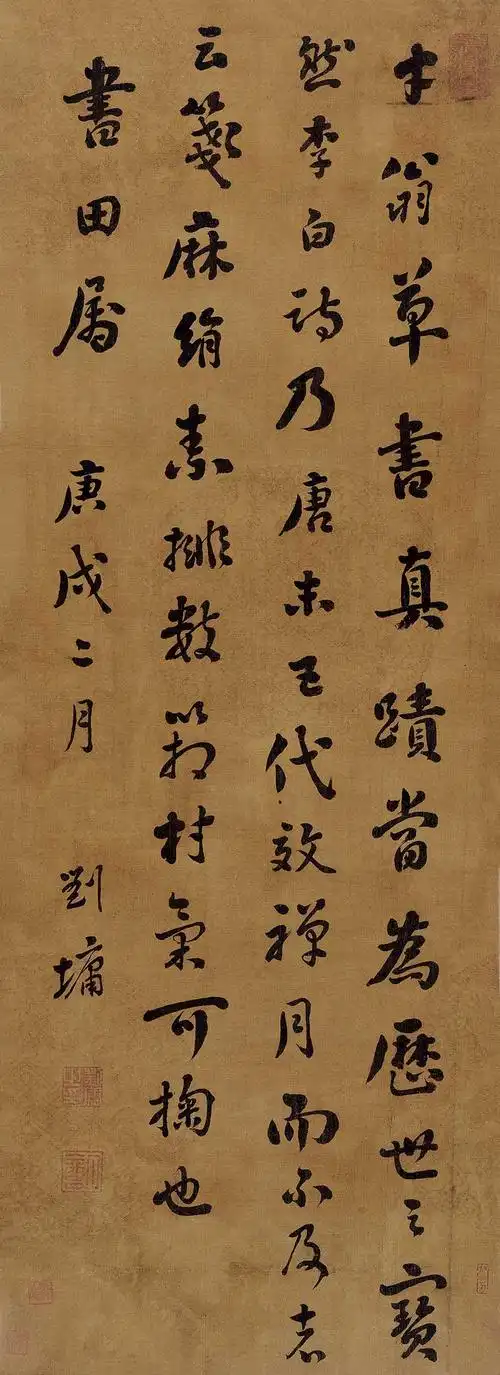 才翁草書真蹟當為歷世之寶
然李白詩乃唐末五代效禪月而不及者
云箋麻絹素排數箱村氣可掬也
書田屬 庚戌二月 劉墉